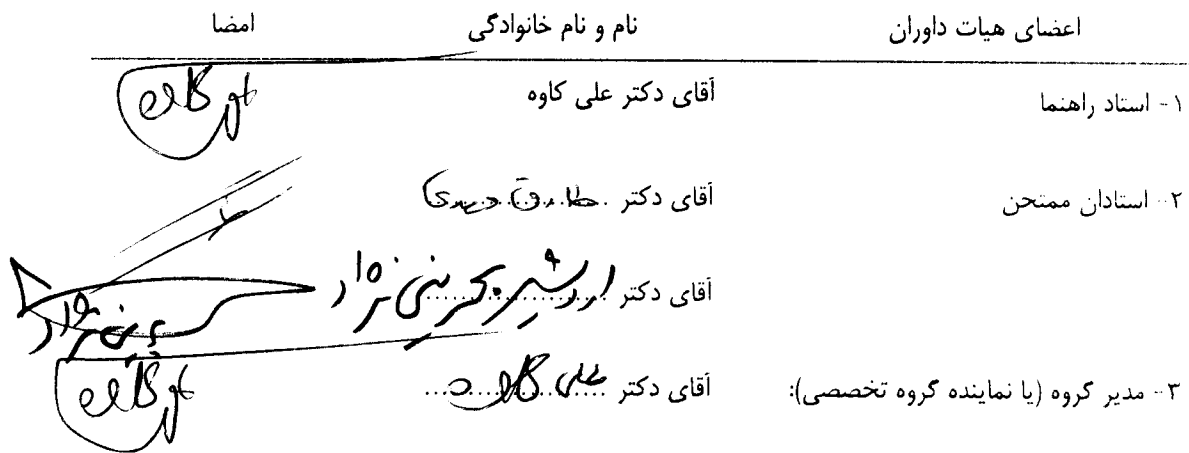 اعضای هیات داوران نام و نام خانوادگی امضا
۱- استاد راهنما آقای دکتر علی کاوه
۲- استادان ممتحن آقای دکتر
آقای دکتر اردشیر بحرینی نژاد
۳- مدیر گروه (یا نماینده گروه تخصصی): آقای دکتر علی کاوه